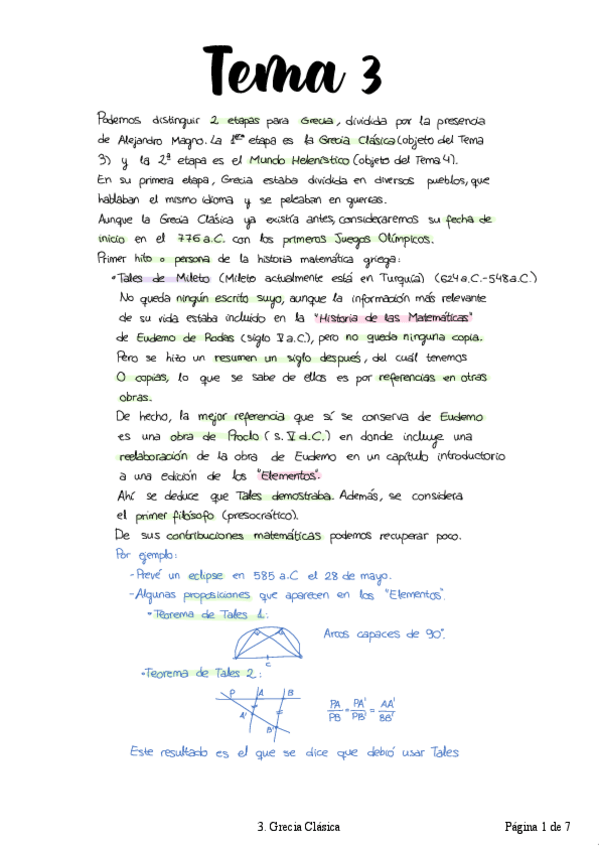 Tema 3
Podemos distinguir 2 etapas para Grecia, dividida por la presencia
de Alejandro Magno. La 1ª etapa es la Grecia Clásica (objeto del Tema
3) y la 2ª etapa es el Mundo Helenístico (objeto del Tema 4).
En su primera etapa, Grecia estaba dividida en diversos pueblos, que
hablaban el mismo idioma y se peleaban en guerras.
Aunque la Grecia Clásica ya existía antes, consideraremos su fecha de
inicio en el 776 a.C. con los primeros Juegos Olímpicos.
Primer hito o persona de la historia matemática griega:
• Tales de Mileto (Mileto actualmente está en Turquía) (624 a.C.-548 a.C.)
No queda ningún escrito suyo, aunque la información más relevante
de su vida estaba incluido en la "Historia de las Matemáticas"
de Eudemo de Rodas (siglo V a.C.), pero no queda ninguna copia.
Pero se hizo un resumen un siglo después, del cuál tenemos
0 copias, lo que se sabe de ellos es por referencias en otras
obras.
De hecho, la mejor referencia que sí se conserva de Eudemo
es una obra de Proclo (s. V d.C.) en donde incluye una
reelaboración de la obra de Eudemo en un capítulo introductorio
a una edición de los "Elementos".
Ahí se deduce que Tales demostraba. Además, se considera
el primer filósofo (presocrático).
De sus contribuciones matemáticas podemos recuperar poco.
Por ejemplo:
- Prevé un eclipse en 585 a.C el 28 de mayo.
- Algunas proposiciones que aparecen en los "Elementos".
• Teorema de Tales 1:
Arcos capaces de 90º.
C
• Teorema de Tales 2:
P A B
A' B'
PA/PB = PA'/PB' = AA'/BB'
Este resultado es el que se dice que debió usar Tales
3. Grecia Clásica Página 1 de 7